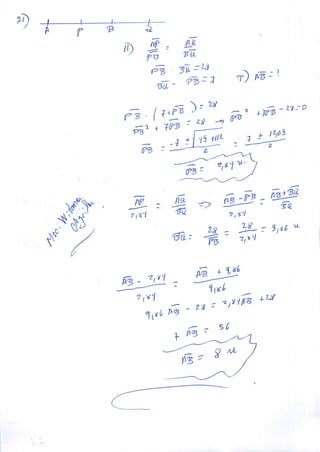 21)
A P B Q
H) AP/PB = AQ/BQ
PB · BQ = 28
BQ - PB = 7 T) AB = ?
PB · (7 + PB) = 28
PB² + 7PB = 28 → PB² + 7PB - 28 = 0
PB = -7 ± √49 + 112 / 2 = 7 ± 12,69 / 2
PB = 2,84 u.
AP / 2,84 = AQ / BQ => AB - PB / 2,84 = AB + BQ / BQ
BQ = 28 / PB = 28 / 2,84 = 9,86 u
AB - 2,84 / 2,84 = AB + 9,86 / 9,86
9,86 AB - 28 = 2,84 AB + 28
7 AB = 56
AB = 8 u